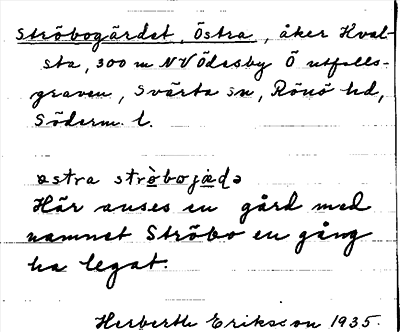 Ströbogärdet, Östra, åker Kval-
sta, 300 m NV Ödesby Ö utfalls-
graven, Svärta sn, Rönö hd,
Söderm. l.
əstra strò̀bojæ̀də
Här anses en gård med
namnet Ströbo en gång
ha legat.
Herberth Eriksson 1935.